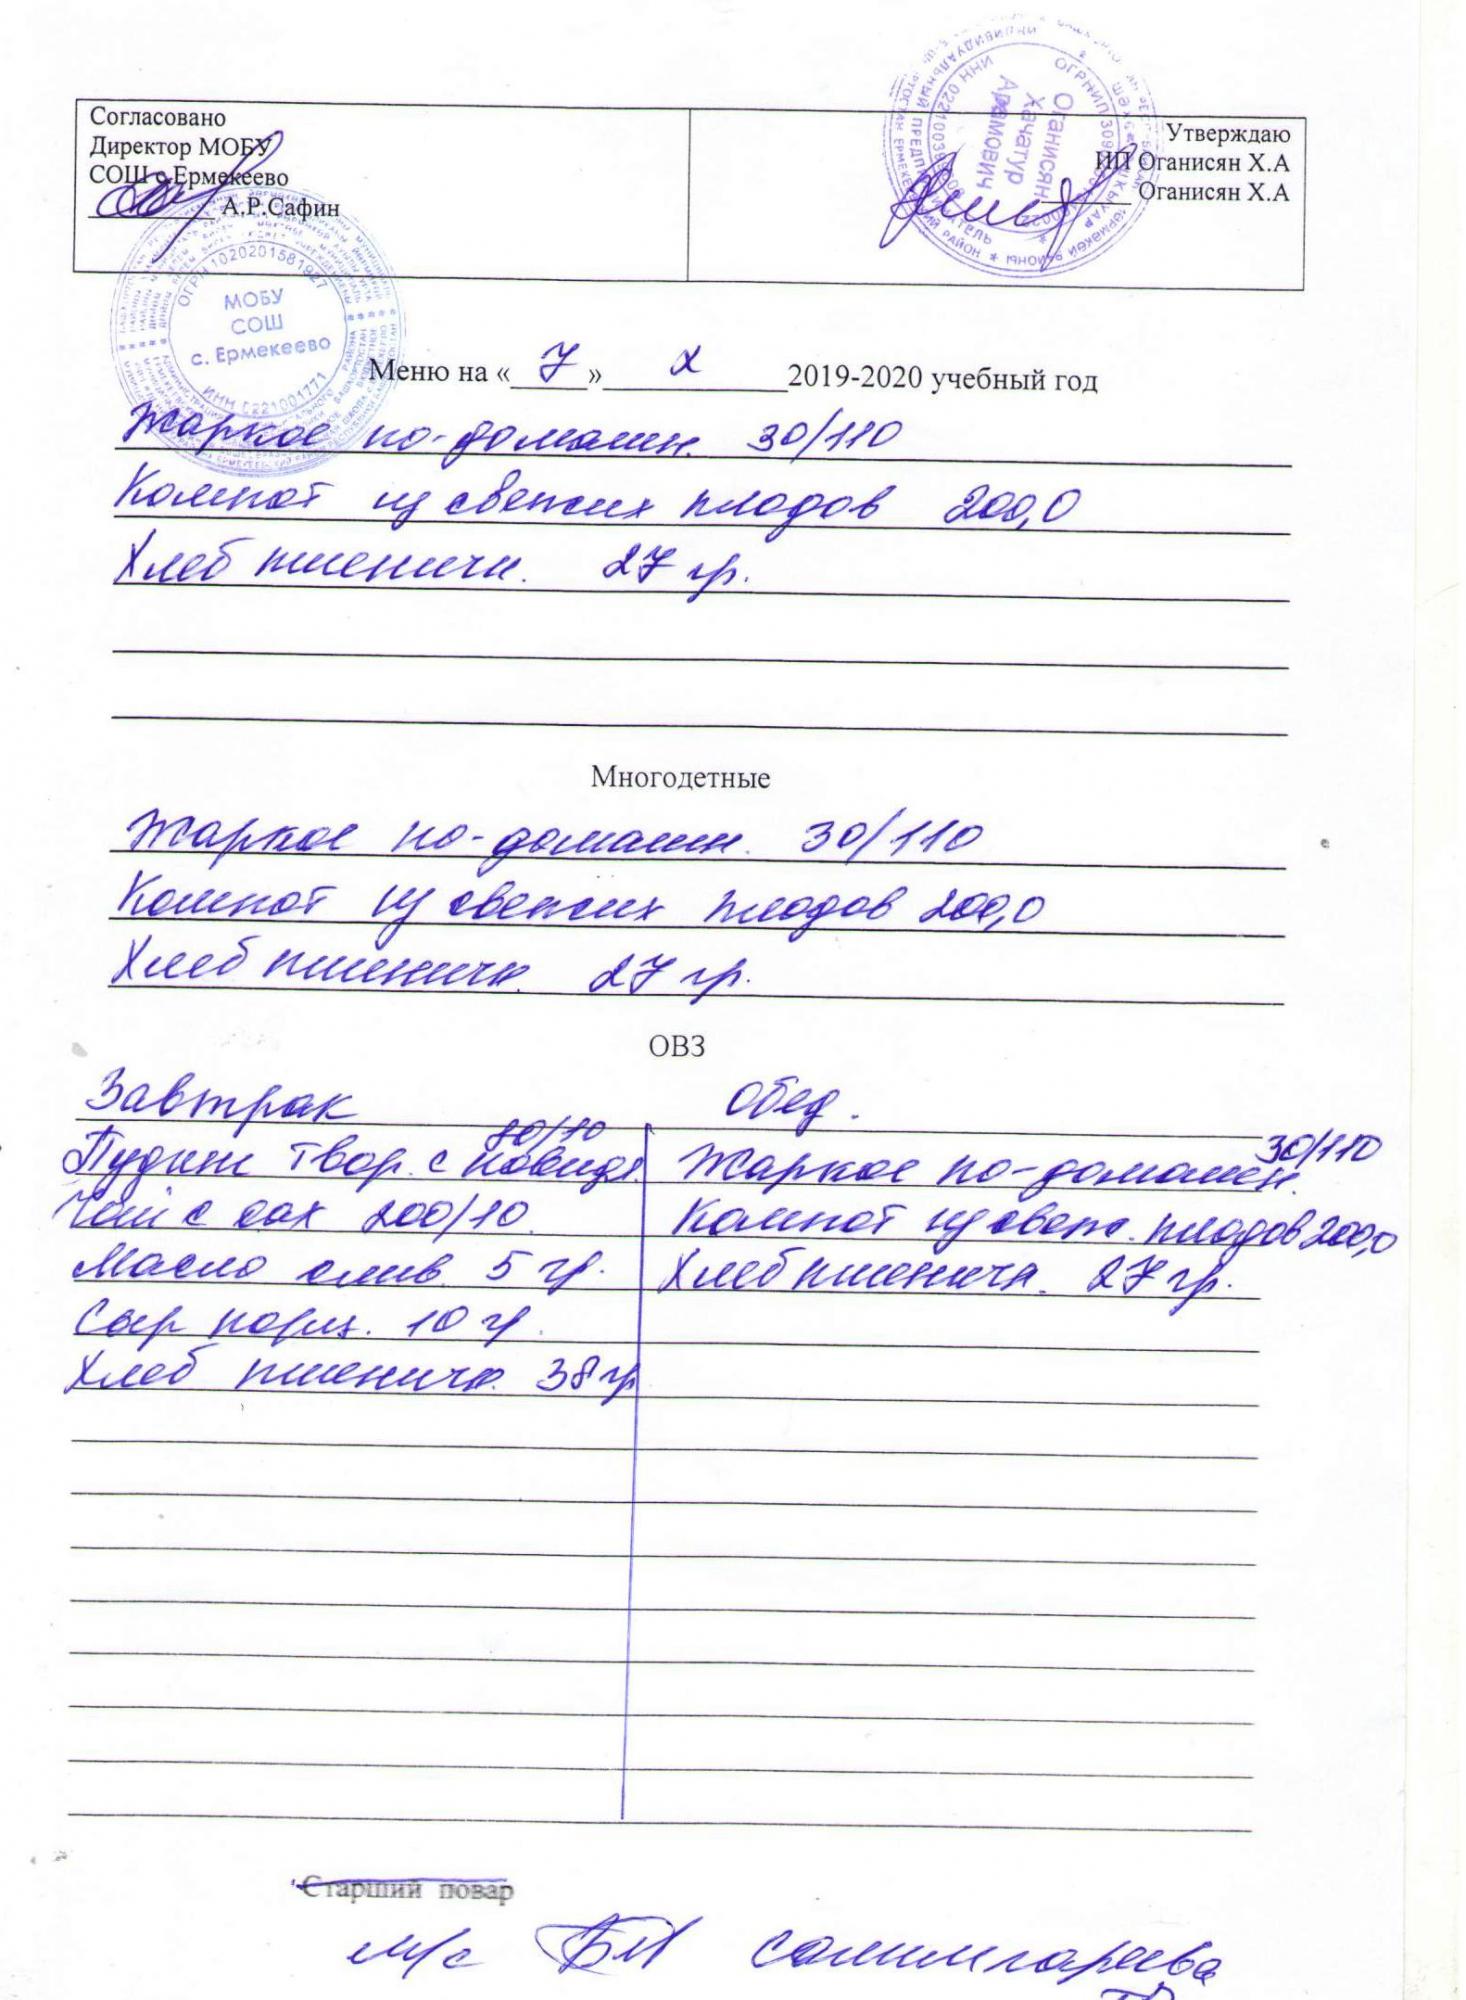 Согласовано
Директор МОБУ
СОШ с.Ермекеево
А.Р.Сафин
Утверждаю
ИП Оганисян Х.А
Оганисян Х.А
ОГРН 1020201581927
МОБУ
СОШ
с. Ермекеево
ИНН 0221001771
Оганисян
Хачатур
Арамович
Меню на «7» X 2019-2020 учебный год
Жаркое по-домашн. 30/110
Компот из свежих плодов 200,0
Хлеб пшеничн. 27 гр.
Многодетные
Жаркое по-домашн. 30/110
Компот из свежих плодов 200,0
Хлеб пшеничн. 27 гр.
ОВЗ
Завтрак
Пудинг твор. с повидл.
Чай с сах 200/10
Масло слив. 5 гр.
Сыр порц. 10 гр.
Хлеб пшеничн. 38 гр
Обед.
Жаркое по-домашн. 30/110
Компот из свеж. плодов 200,0
Хлеб пшеничн. 27 гр.
Старший повар
м/с Салимгареева